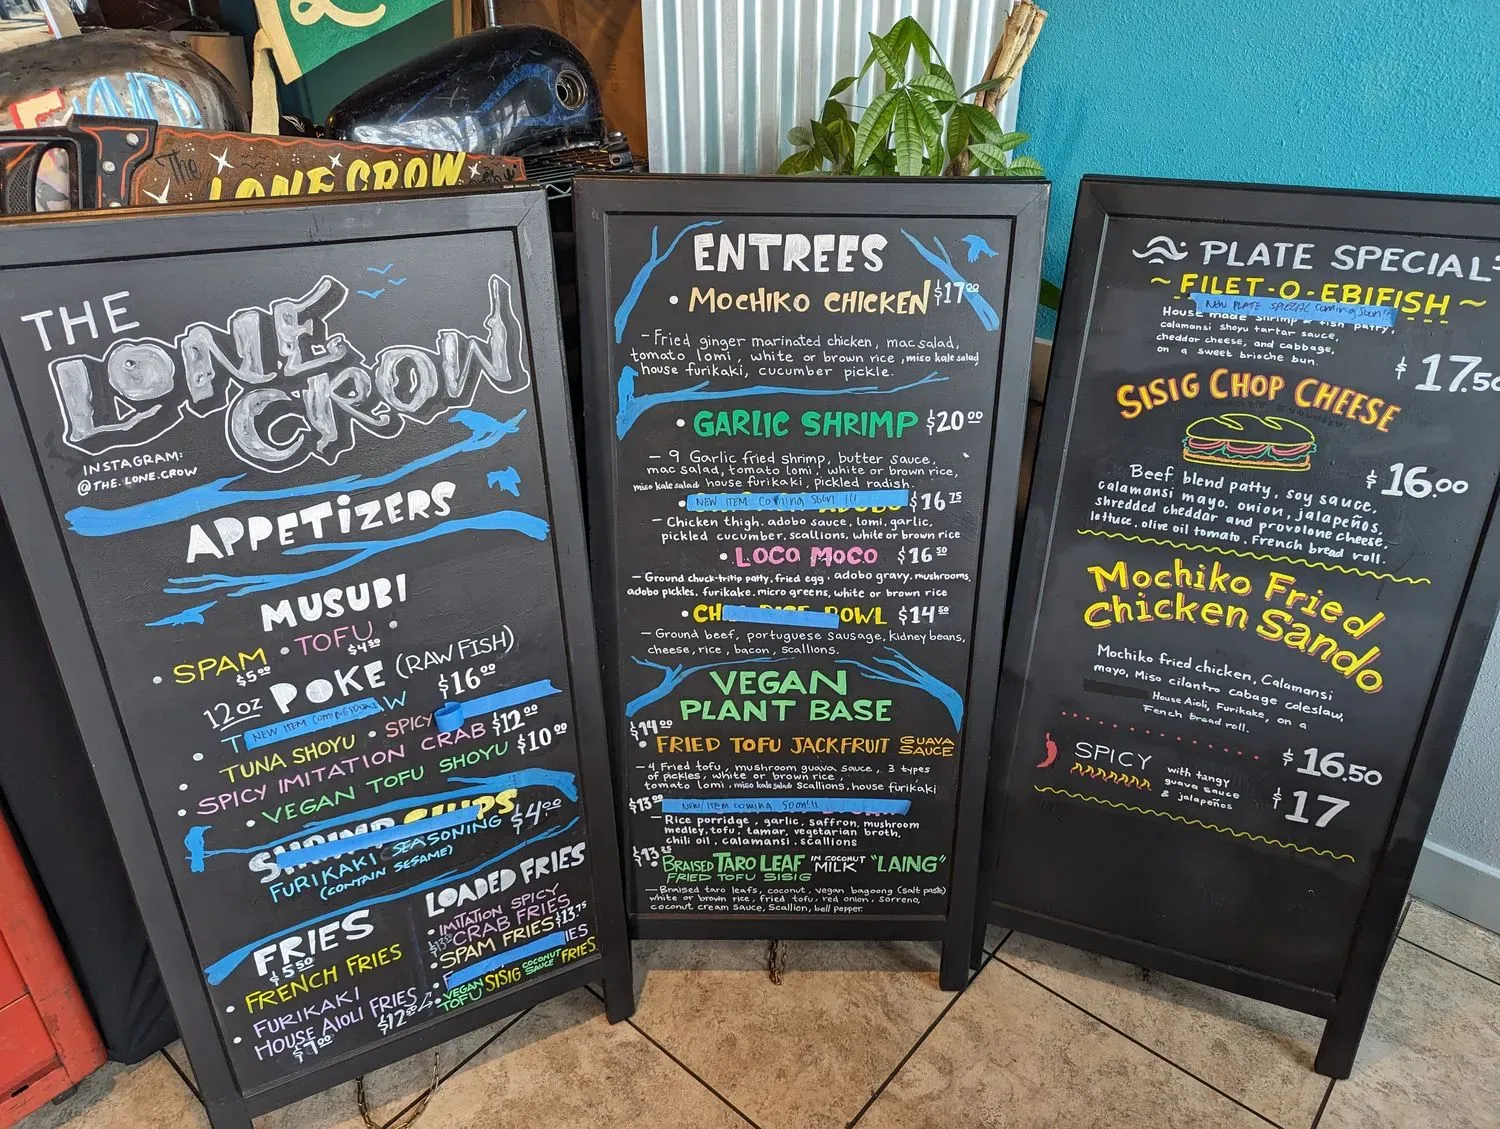 The
LONE CROW
THE
LONE
CROW
INSTAGRAM:
@THE.LONE.CROW
APPETiZERS
MUSUBI
• SPAM • TOFU •
$5.00 $4.50
12oz POKE (RAW FISH)
$16.00
• T NEW ITEM COMING SOON W
TUNA SHOYU • SPICY
• SPICY IMITATION CRAB $12.00
• VEGAN TOFU SHOYU $10.00
SHRIMP CHIPS $4.00
FURIKAKI SEASONING
(CONTAIN SESAME)
FRIES
$5.50
• FRENCH FRIES
• FURIKAKI
HOUSE AIOLI FRIES
$7.00
LOADED FRIES
• IMITATION SPICY
CRAB FRIES $13.75
• SPAM FRIES
• F IES
• VEGAN TOFU SISIG COCONUT SAUCE FRIES
$12
ENTREES
• MOCHIKO CHICKEN $17.00
– Fried ginger marinated chicken, mac salad,
tomato lomi, white or brown rice, miso kale salad
house furikaki, cucumber pickle.
• GARLIC SHRIMP $20.00
– 9 Garlic fried shrimp, butter sauce,
mac salad, tomato lomi, white or brown rice,
miso kale salad house furikaki, pickled radish.
• NEW ITEM Coming Soon !!! ADOBO $16.75
– Chicken thigh, adobo sauce, lomi, garlic,
pickled cucumber, scallions, white or brown rice
• LOCO MOCO $16.50
– Ground chuck-tritip patty, fried egg, adobo gravy, mushrooms,
adobo pickles, furikake, micro greens, white or brown rice
• CH RICE BOWL $14.50
– Ground beef, portuguese sausage, kidney beans,
cheese, rice, bacon, scallions.
VEGAN
PLANT BASE
$14.00
• FRIED TOFU JACKFRUIT GUAVA SAUCE
– 4 Fried tofu, mushroom guava sauce, 3 types
of pickles, white or brown rice,
tomato lomi, miso kale salad scallions, house furikaki
$13.00
NEW ITEM COMING SOON!!
– Rice porridge, garlic, saffron, mushroom
medley, tofu, tamar, vegetarian broth,
chili oil, calamansi, scallions
$13.25
• BRAISED TARO LEAF IN COCONUT MILK "LAING"
FRIED TOFU SISIG
– Braised taro leafs, coconut, vegan bagoong (salt paste)
white or brown rice, fried tofu, red onion, sorreno,
coconut cream sauce, Scallion, bell pepper.
PLATE SPECIALS
~ FILET-O-EBIFISH ~
NEW PLATE SPECIAL Coming Soon!!
House made shrimp & fish patty,
calamansi shoyu tartar sauce,
cheddar cheese, and cabbage,
on a sweet brioche bun.
$17.50
SISIG CHOP CHEESE
$16.00
Beef blend patty, soy sauce,
calamansi mayo, onion, jalapeños,
shredded cheddar and provolone cheese,
lettuce, olive oil tomato, French bread roll.
Mochiko Fried
Chicken Sando
Mochiko fried chicken, Calamansi
mayo, Miso cilantro cabage coleslaw,
House Aioli, Furikake, on a
Fench bread roll.
$16.50
SPICY with tangy
guava sauce
& jalapeños
$17